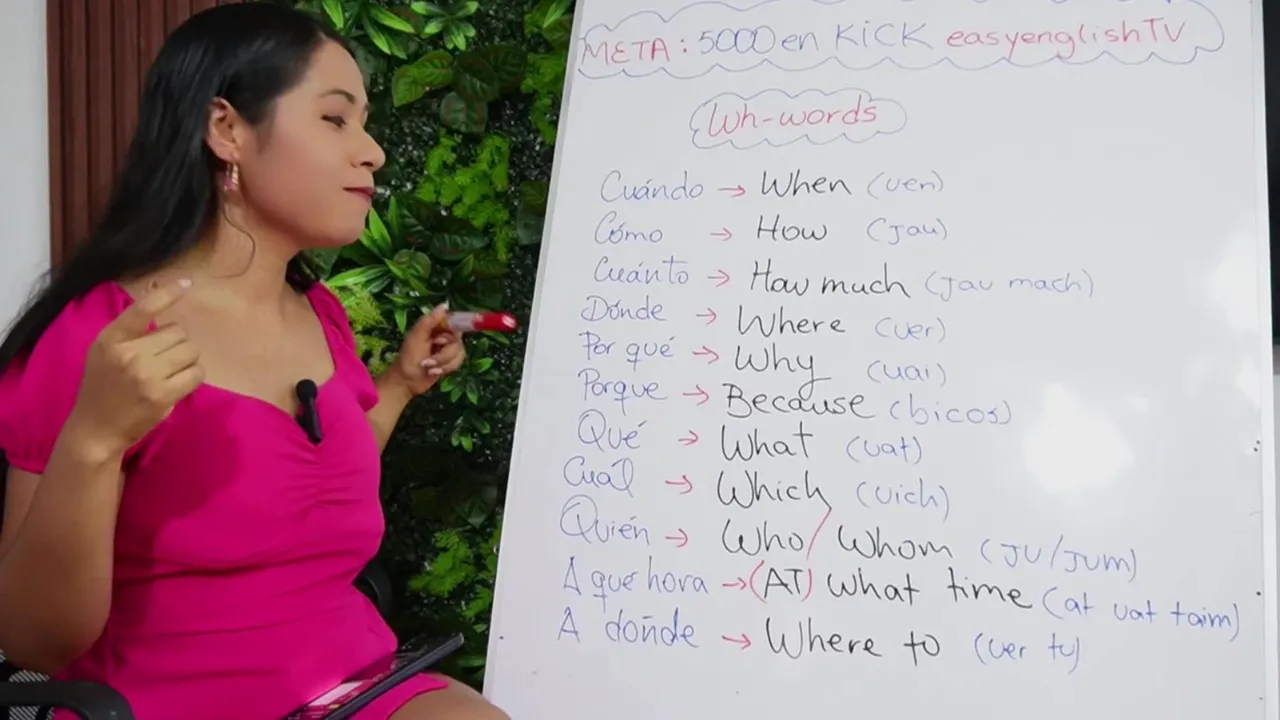 META: 5000 en KICK easyenglishTV
Wh-words
Cuándo → When (uen)
Cómo → How (jau)
Cuánto → How much (jau mach)
Dónde → Where (uer)
Por qué → Why (uai)
Porque → Because (bicos)
Qué → What (uat)
Cuál → Which (uich)
Quién → Who / Whom (JU/JUM)
A que hora → (AT) what time (at uat taim)
A donde → Where to (uer tu)